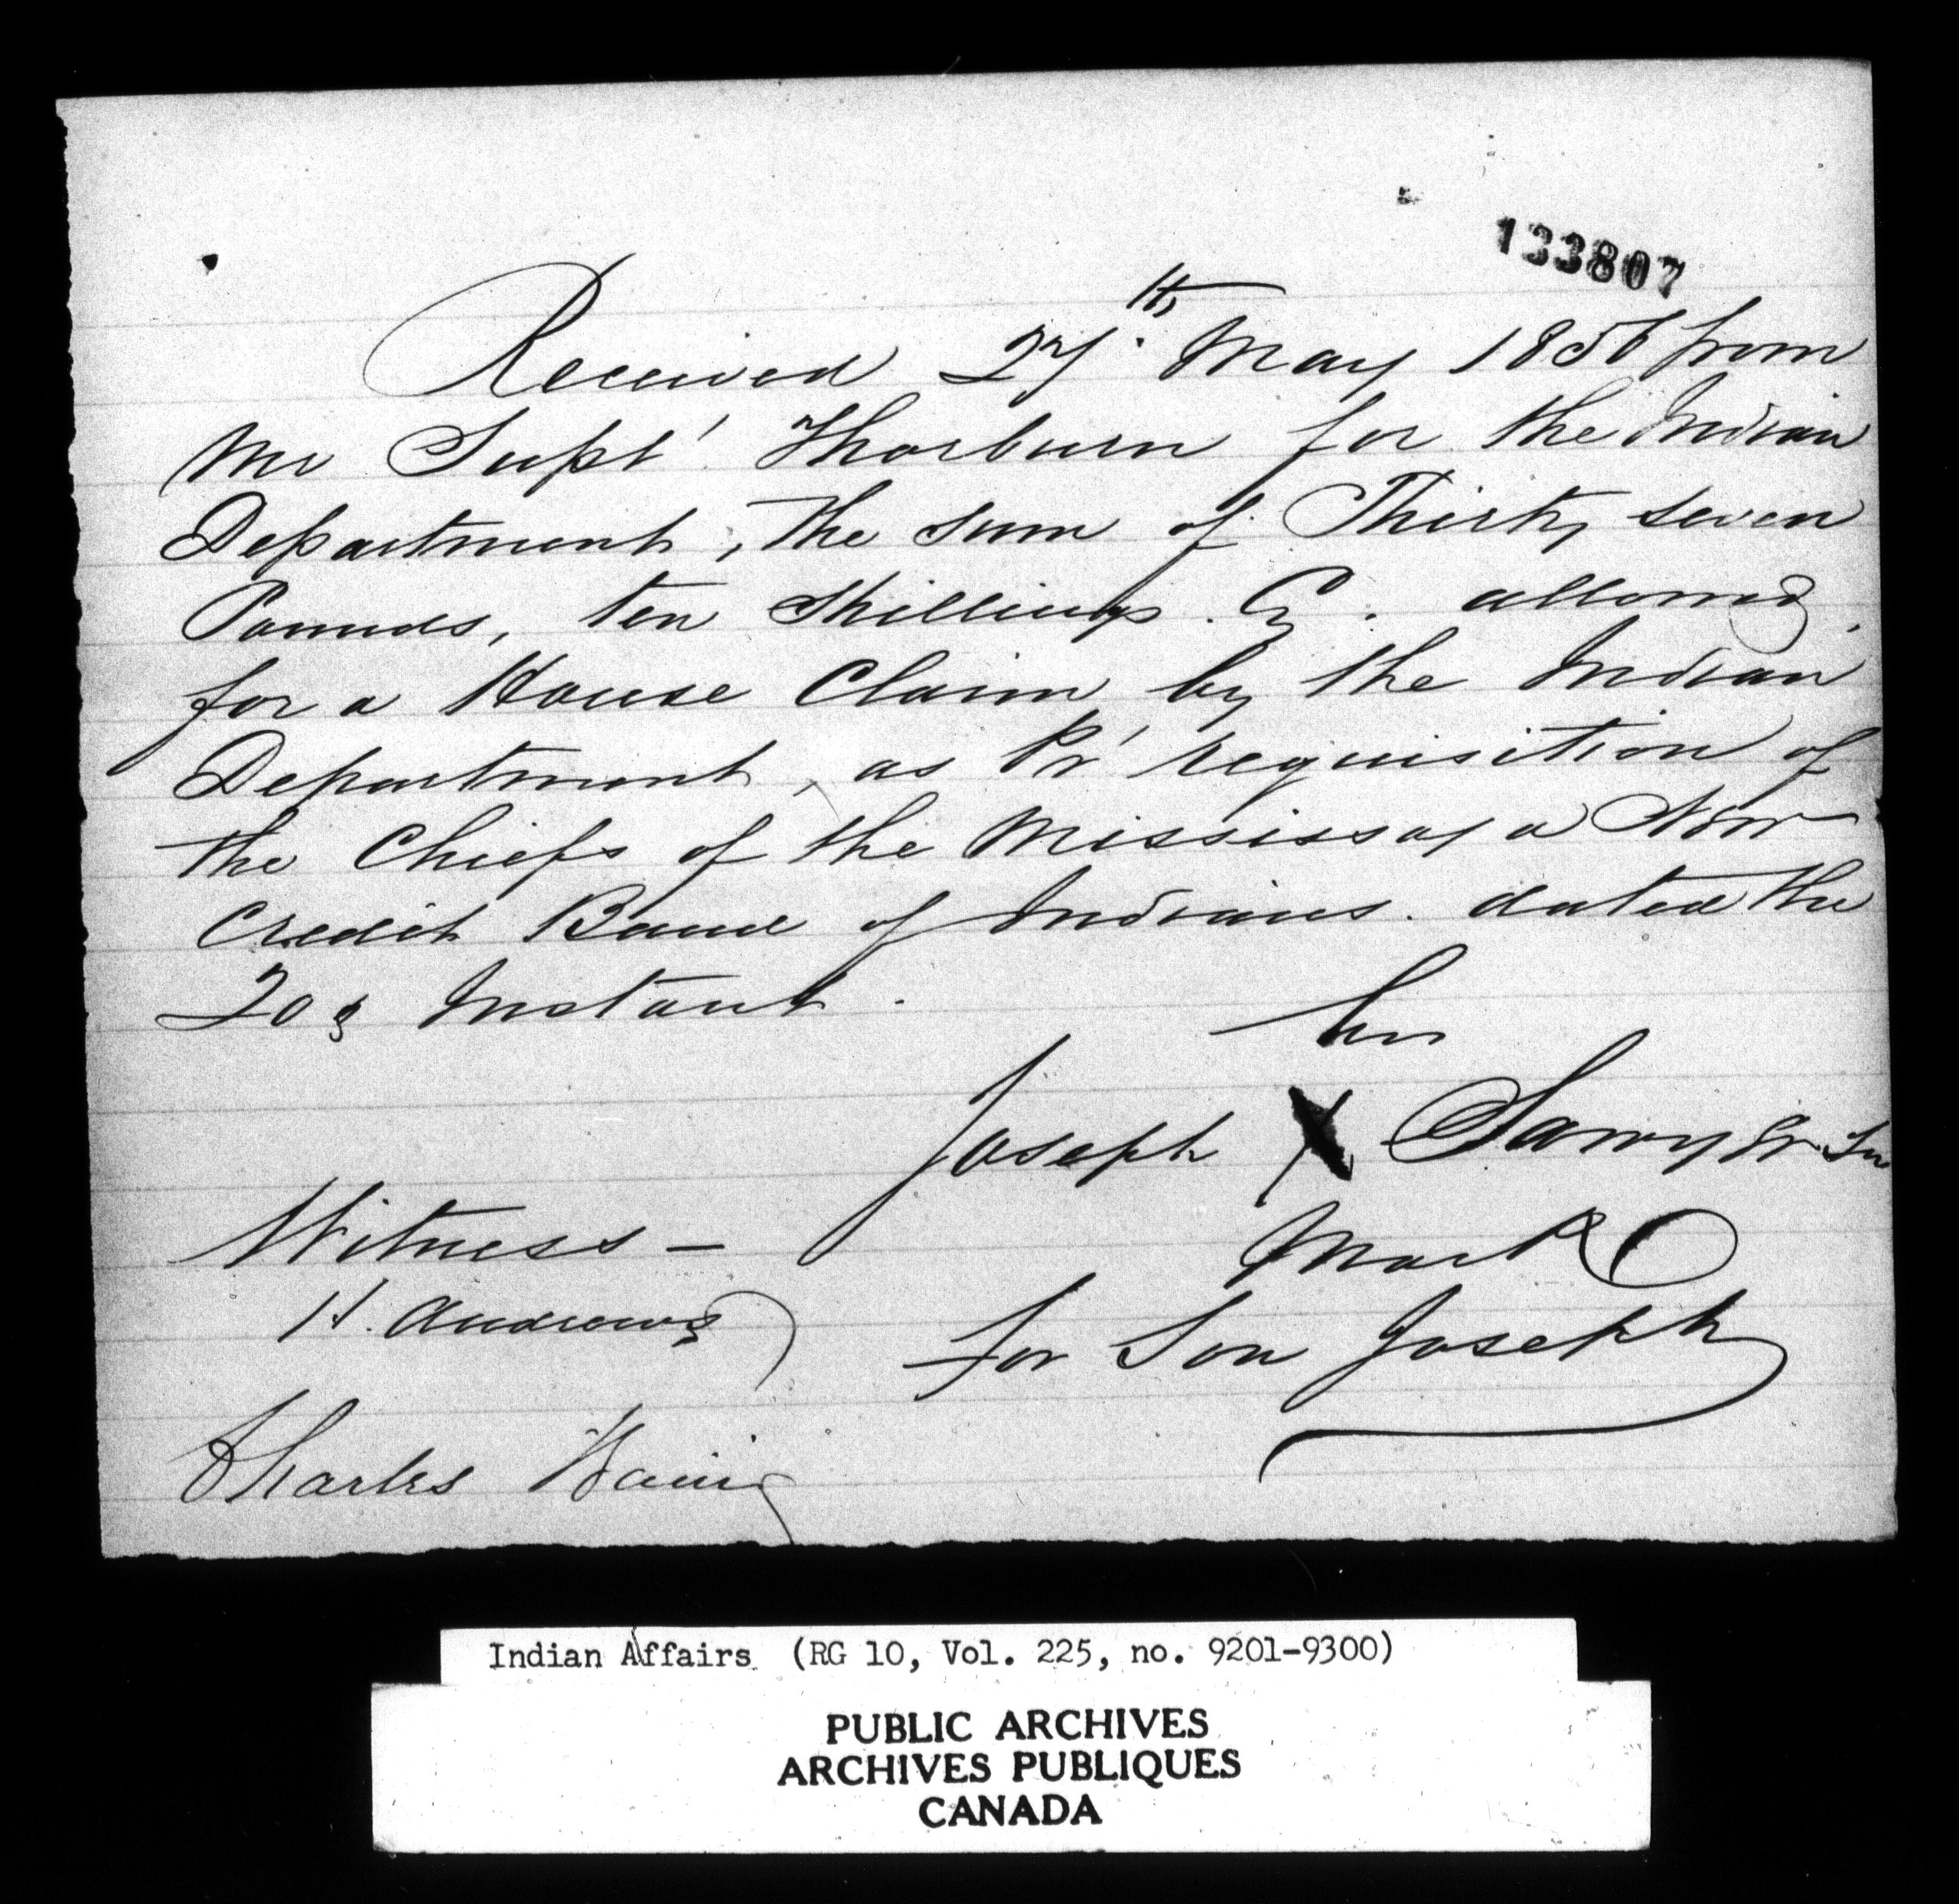 133807
Received 27th May 1856 from
Mr Supt Thorburn for the Indian
Department, the sum of Thirty seven
Pounds, ten Shillings. Cy. allowed
for a House Claim by the Indian
Department, as Pr requisition of
the Chiefs of the Mississaga New
Credit Band of Indians. dated the
20 Instant.
his
Joseph X Sawyer Sn
Mark
for Son Joseph
Witness -
H. Andrews
Charles
Indian Affairs (RG 10, Vol. 225, no. 9201-9300)
PUBLIC ARCHIVES
ARCHIVES PUBLIQUES
CANADA